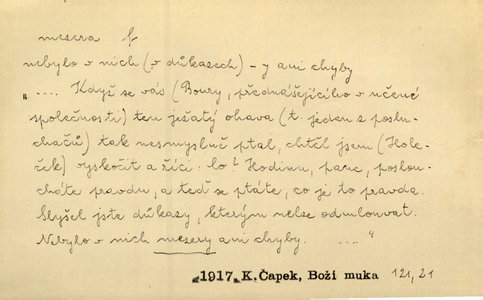 mezera f
nebylo v nich (v důkazech) – y ani chyby
„.... Když se vás (Boury, přednášejícího v učené
společnosti) ten ježatý ohava (t. jeden z poslu-
chačů) tak nesmyslně ptal, chtěl jsem (Hole-
ček) vyskočit a říci: Hodinu, pane, poslou-
cháte pravdu, a teď se ptáte, co je to pravda.
Slyšel jste důkazy, kterým nelze odmlouvat.
Nebylo v nich mezery ani chyby. ...."
1917, K. Čapek, Boží muka 121, 21